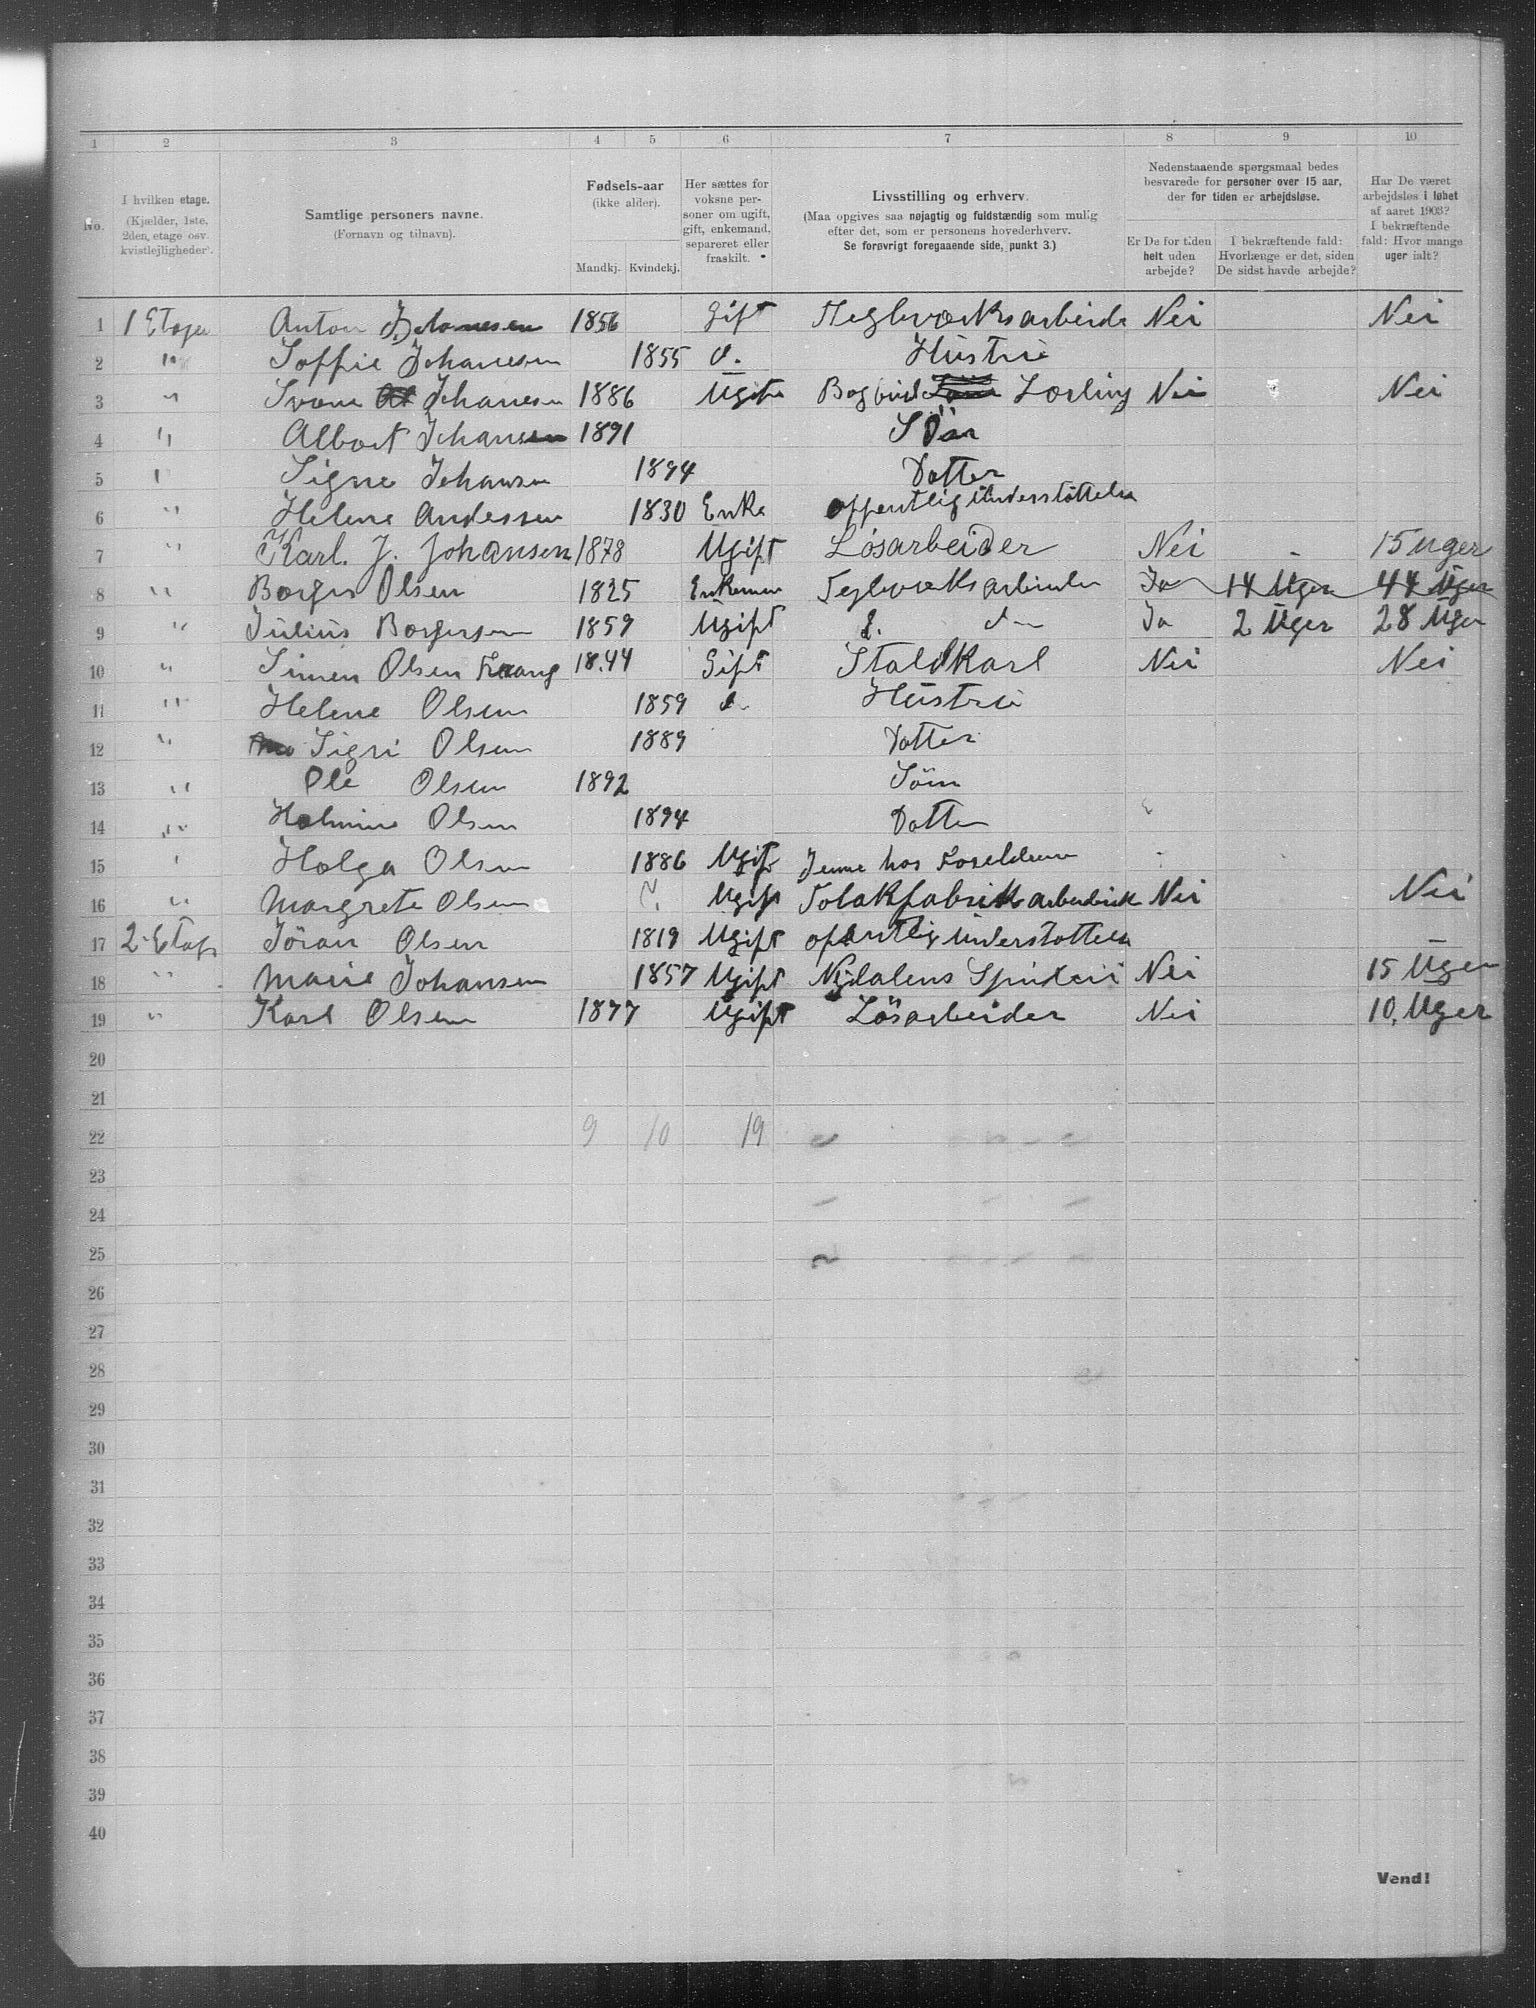 1 2 3 4 5 6 7 8 9 10
No.
I hvilken etage.
(Kjælder, 1ste, 2den, etage osv. kvistlejligheder).
Samtlige personers navne.
(Fornavn og tilnavn).
Fødsels-aar
(ikke alder).
Mandkj. Kvindekj.
Her sættes for voksne personer om ugift, gift, enkemand, separeret eller fraskilt.
Livsstilling og erhverv.
(Maa opgives saa nøjagtig og fuldstændig som mulig efter det, som er personens hovederhverv.
Se forøvrigt foregaaende side, punkt 3.)
Nedenstaaende spørgsmaal bedes besvarede for personer over 15 aar, der for tiden er arbejdsløse.
Er De for tiden helt uden arbejde?
I bekræftende fald: Hvorlænge er det, siden De sidst havde arbejde?
Har De været arbejdsløs i løbet af aaret 1903? I bekræftende fald: Hvor mange uger ialt?
1 1 Etage Anton Johanesen 1856 Gift Teglværksarbeide Nei Nei
2 " Soffie Johanesen 1855 d. Hustru
3 " Johanesen 1886 Ugift Bogbind Lærling Nei Nei
4 " Albert Johansen 1891 Søn
5 " Signe Johansen 1894 Datter
6 " Helene Andersen 1830 Enke offentlig Understøttelse
7 " Karl. J. Johansen 1878 Ugift Løsarbeider Nei - 15 Uger
8 " Borger Olsen 1825 Enkeman Teglværksarbeider Ja 14 Uger 44 Uger
9 " Julius Borgersen 1859 Ugift d. d Ja 2 Uger 28 Uger
10 " Simen Olsen 1844 Gift Staldkarl Nei Nei
11 " Helene Olsen 1859 d. Hustru
12 " Sigri Olsen 1889 Datter
13 " Ole Olsen 1892 Søn
14 " Halmine Olsen 1894 Datter
15 " Helga Olsen 1886 Ugift Jemme hos Foreldrene
16 " Margrete Olsen Ugift Tobakfabrik arbeiderik Nei Nei
17 2 Etage Jöran Olsen 1819 Ugift ofentlig Understøttelse
18 " Marie Johansen 1857 Ugift Nydalens Spinderi Nei 15 Uger
19 " Karl Olsen 1877 Ugift Løsarbeider Nei 10. Uger
20
21
22 9 10 19
23
24
25
26
27
28
29
30
31
32
33
34
35
36
37
38
39
40
Vend!